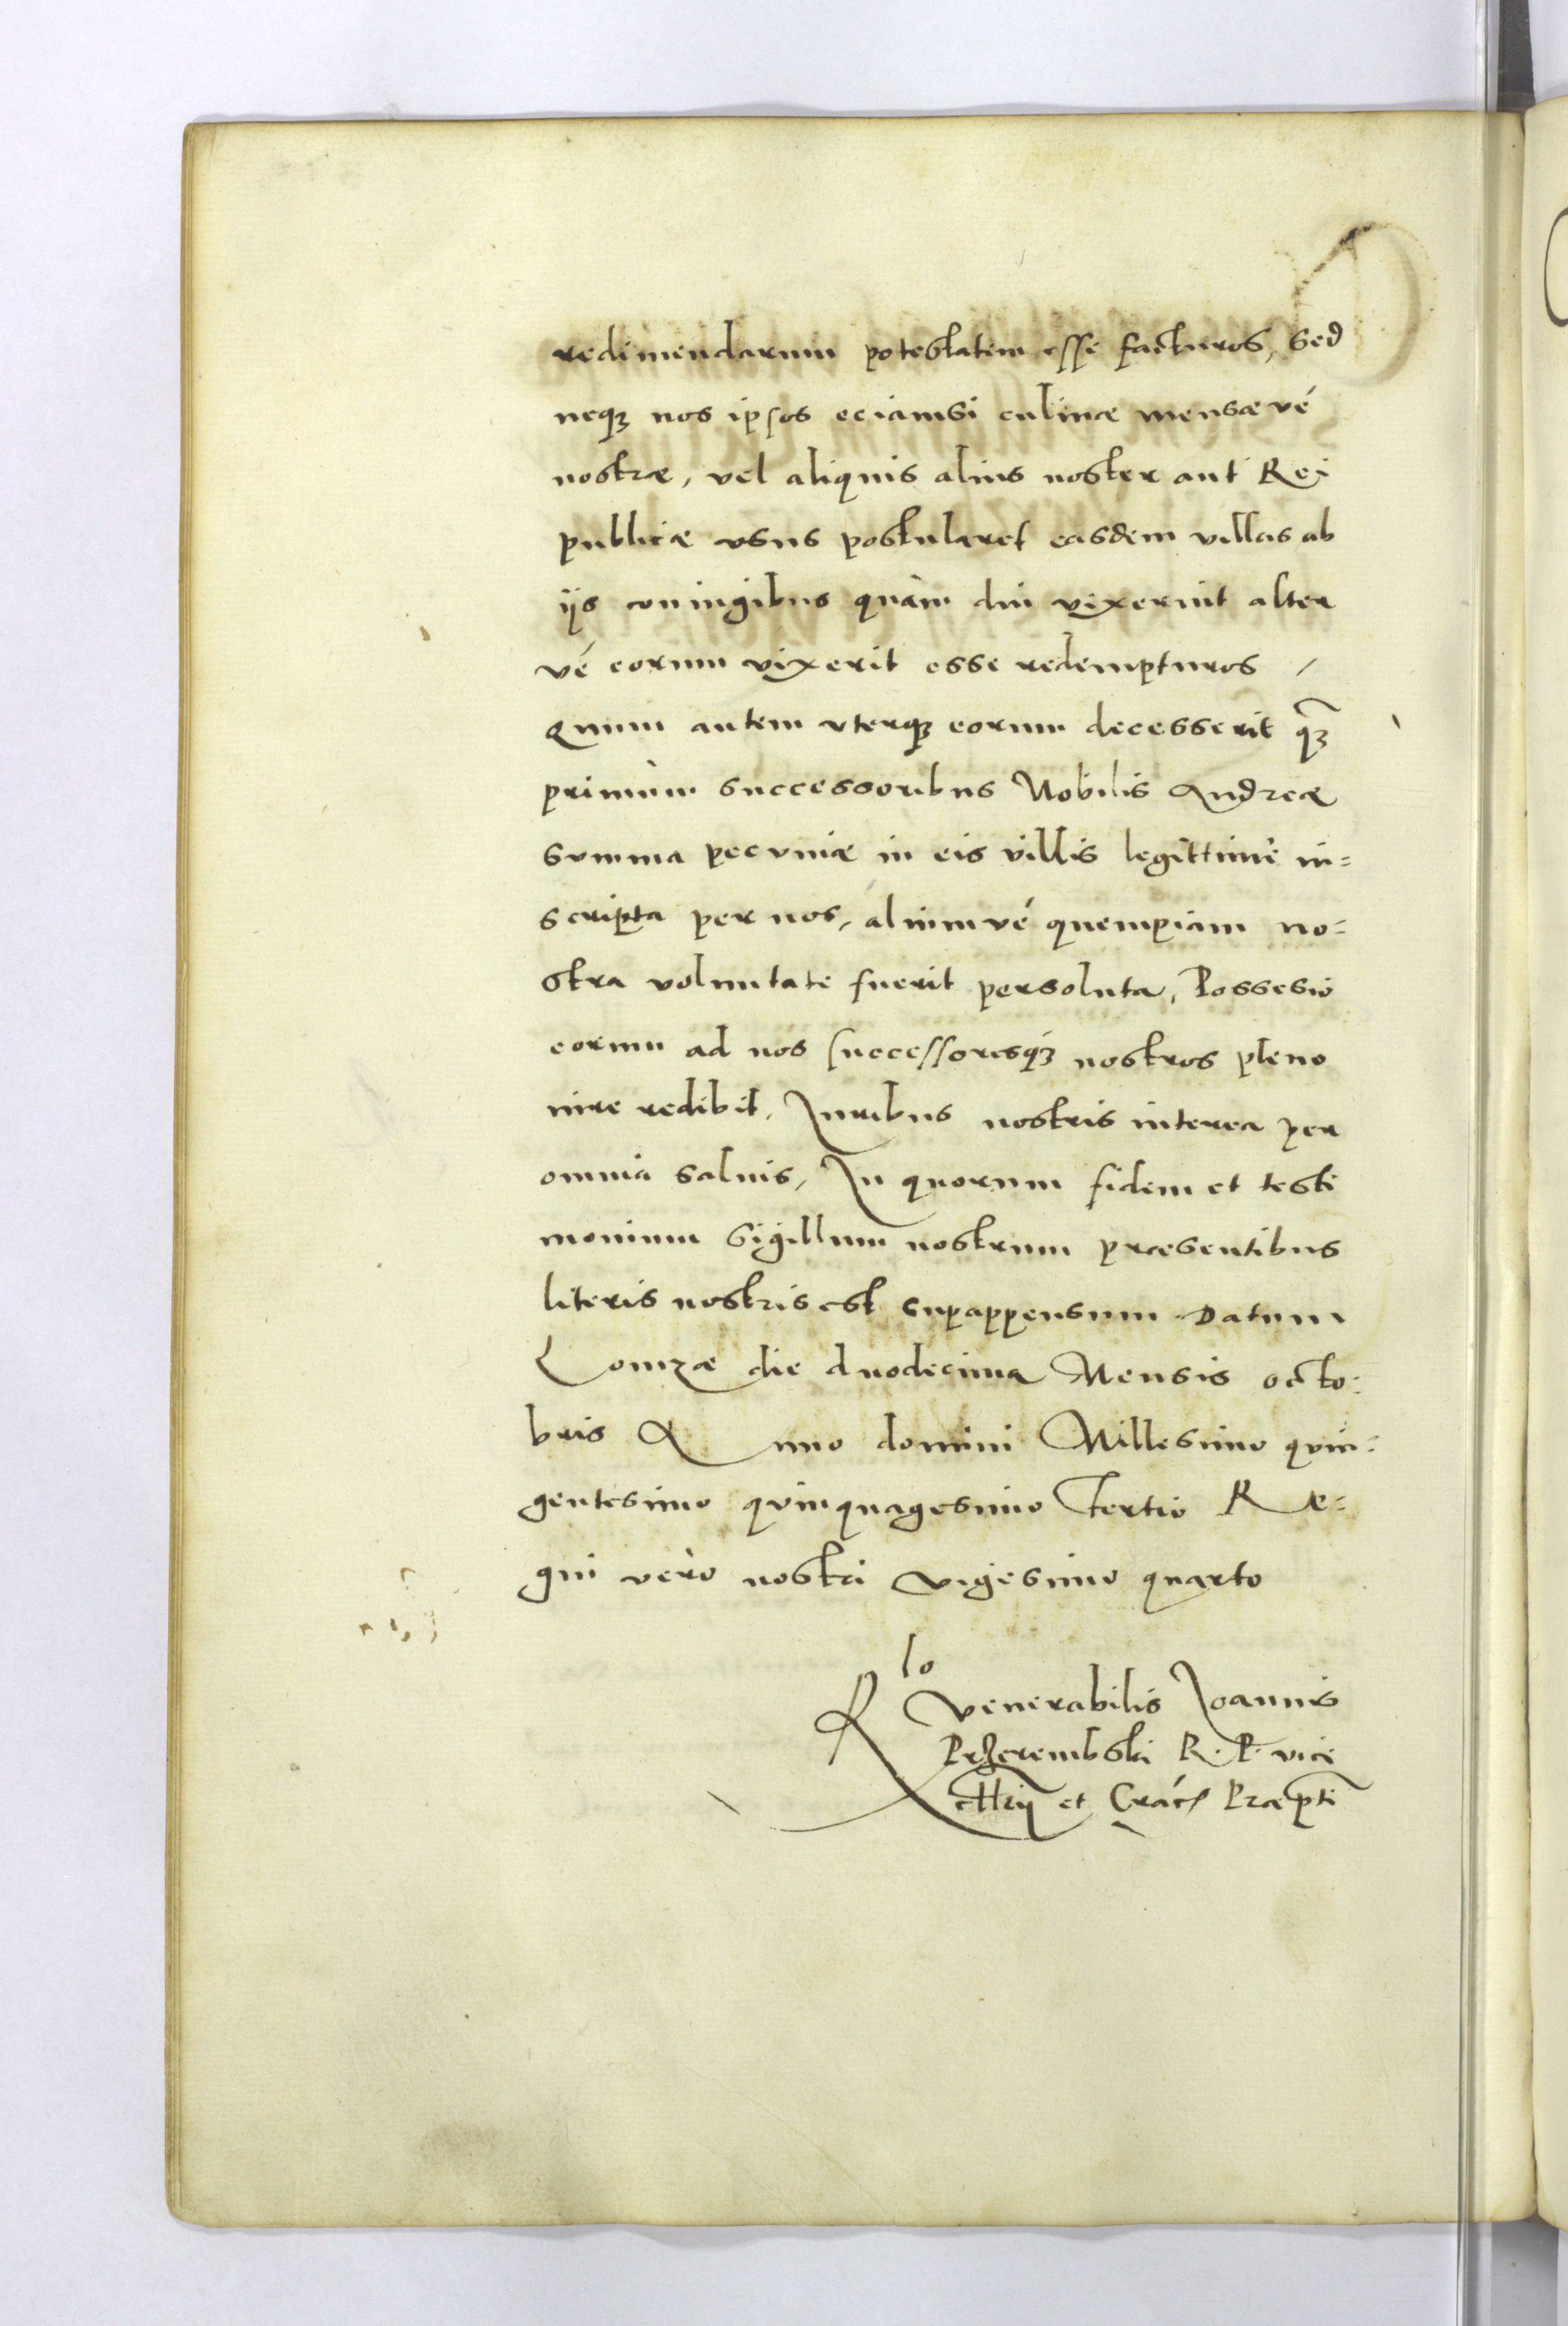 redimendarum potestatem esse facturos, Sed
neq3 nos ipsos eciamsi culinæ mensæ vé
nostræ, vel aliquis alius noster aut Rei
publicæ vsus postularet easdem villas ab
ijs coniugibus quàm diu vixerint alter
vé eorum vixerit esse redempturos /
Quum autem vterq3 eorum decesserit q3
primùm successoribus Nobilis Andreæ
summa pecuniæ in eis villis legittimè in=
scripta per nos, aliumvé quempiam no=
stra voluntate fuerit persoluta, Possesio
eorum ad nos successoresq3 nostros pleno
iure redibit. Iuribus nostris interea per
omnia saluis, In quorum fidem et testi
monium Sigillum nostrum præsentibus
literis nostris est supappensum. Datum
Lomzæ die duodecima Mensis octo:
bris Anno domini Millesimo quin=
gentesimo quinquagesimo Tertio Re=
gni vero nostri vigesimo quarto
Rlo Venerabilis Ioannis
Przerembski R. P. vice
cllrij et Crac Præpti